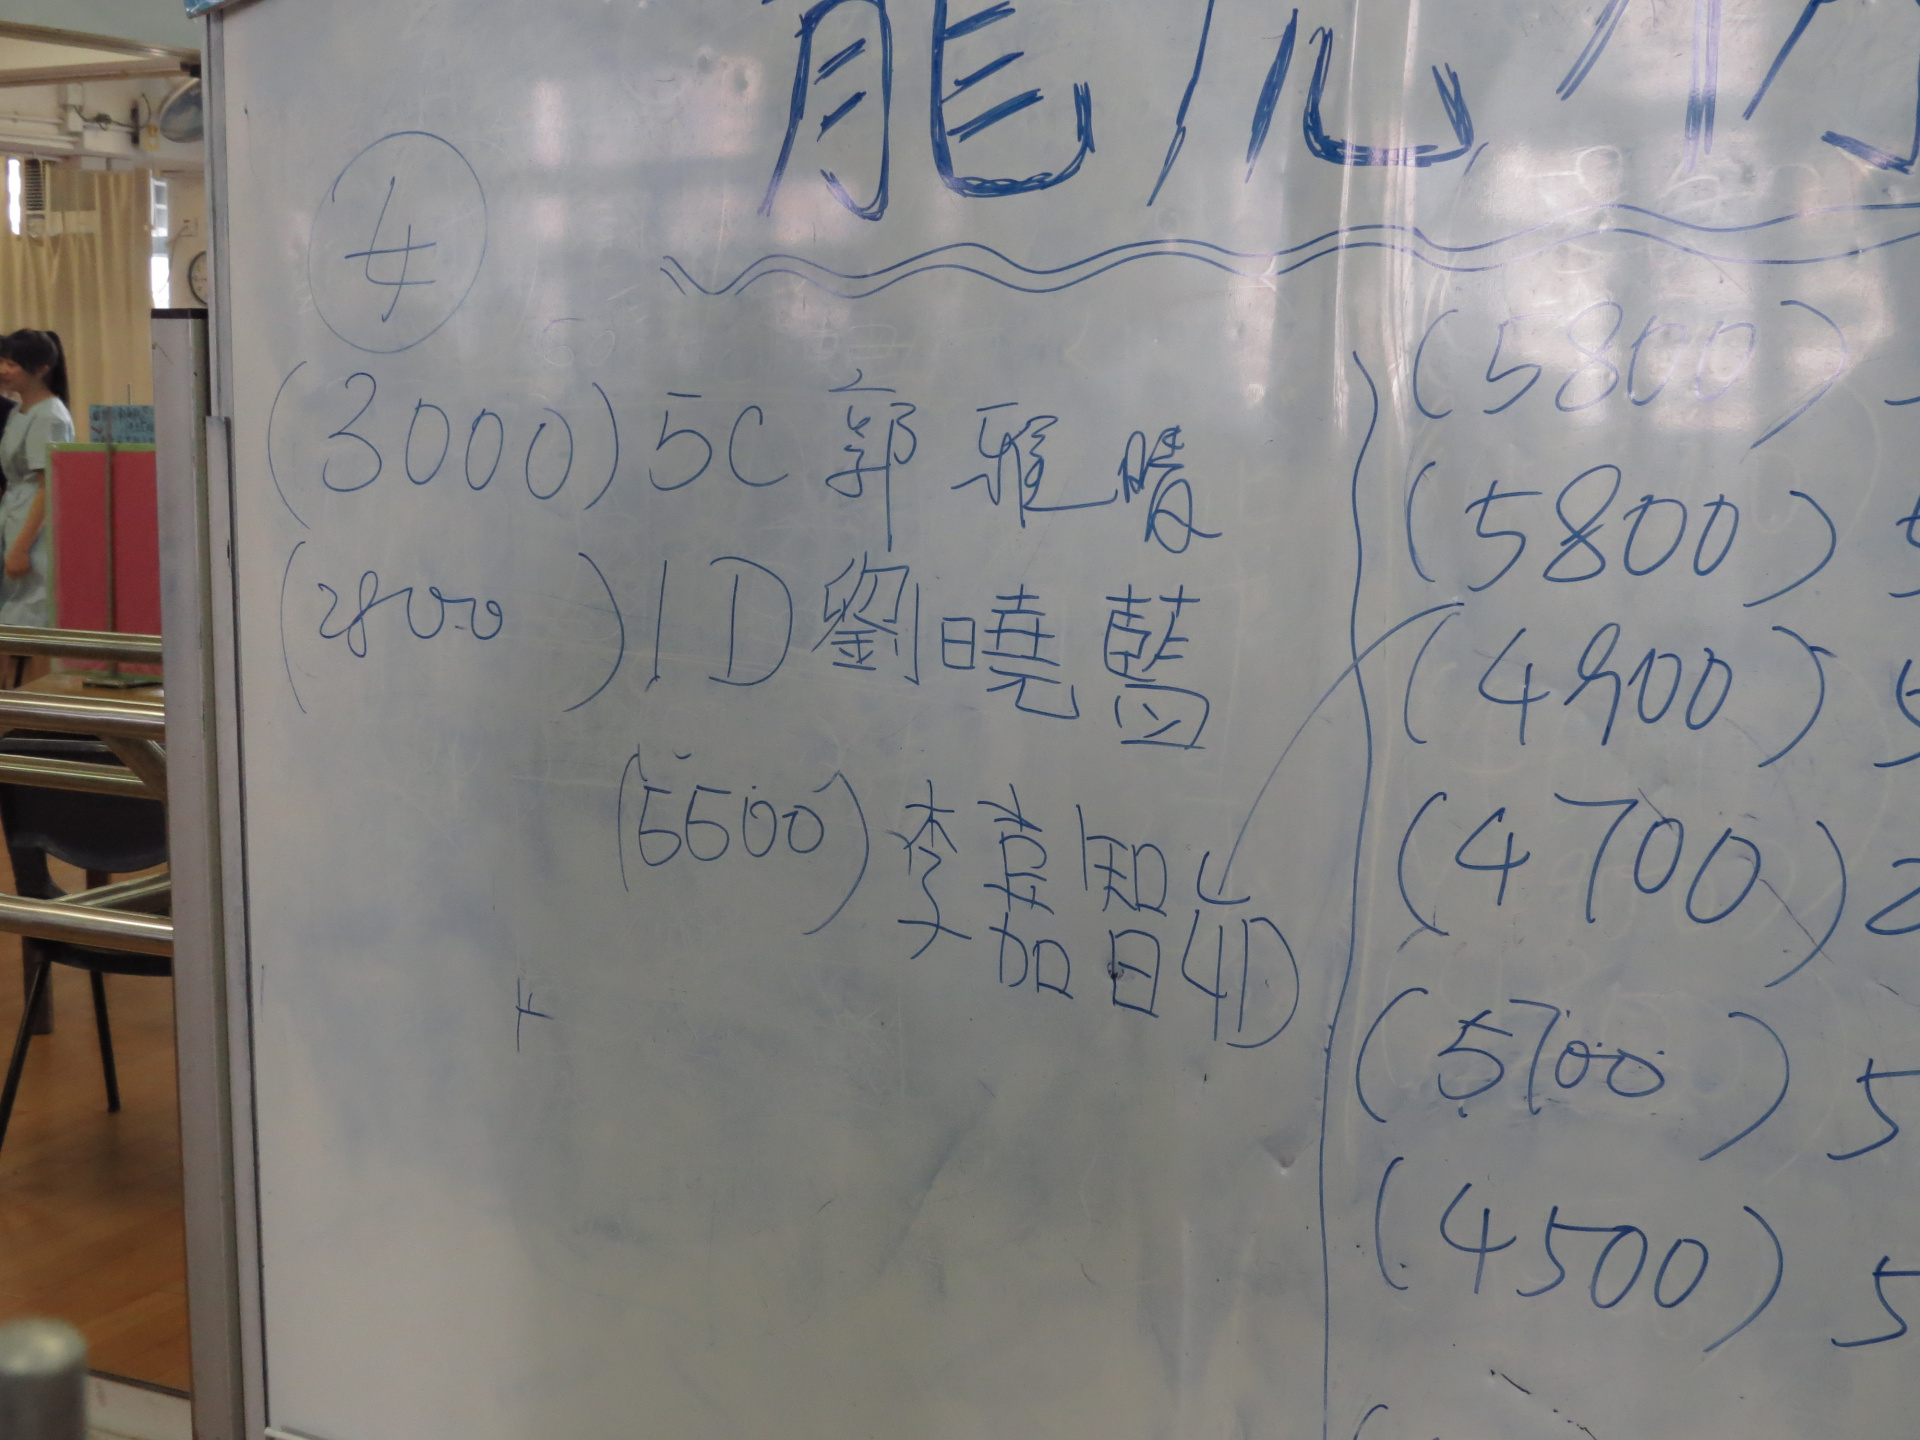 龍虎榜
女
(3000) 5C 郭雅晴
(2800) 1D 劉曉藍
(5500) 李嘉智 4D
(5800)
(5800) 5
(4900) 5
(4700) 2
(5700) 5
(4500) 5